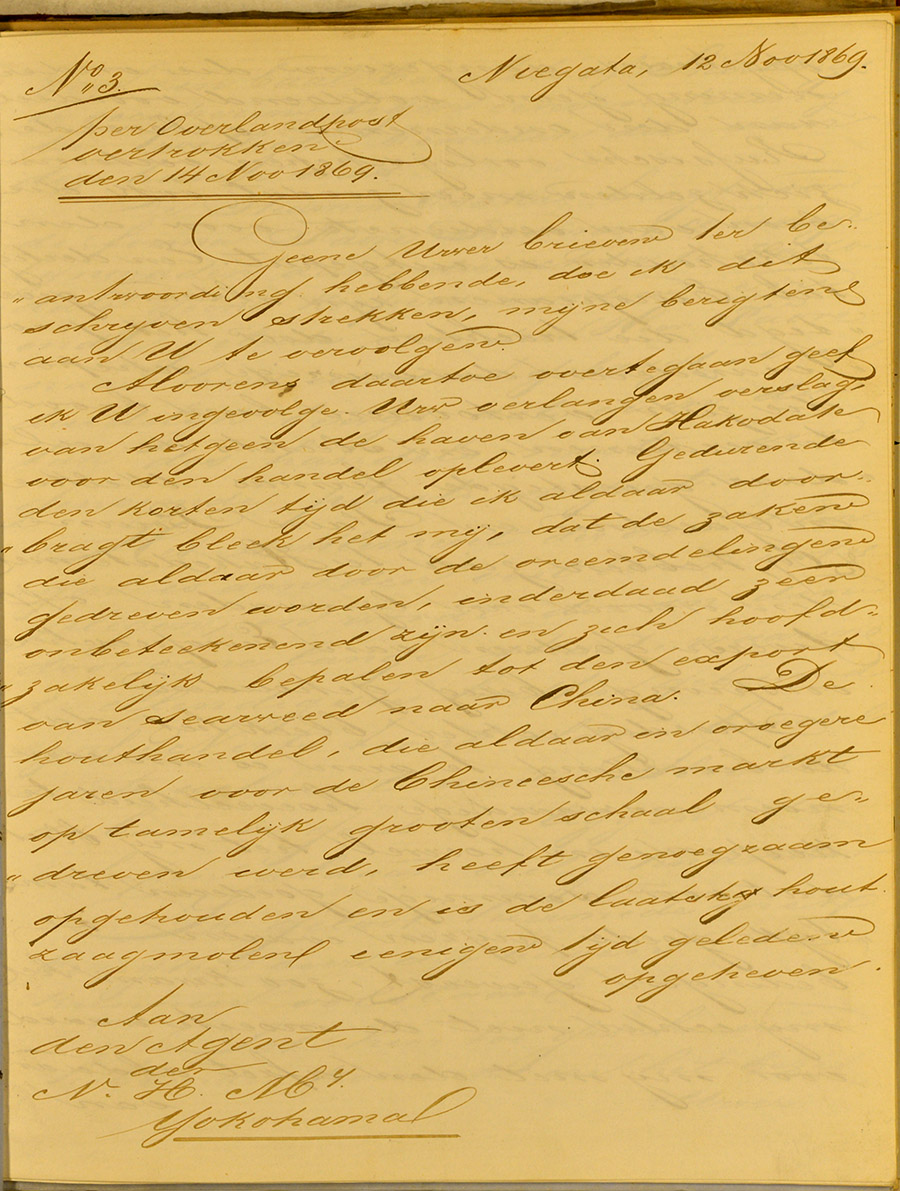 No 3.
Niegata, 12 Nov 1869.
per Overlandpost
vertrokken
den 14 Nov 1869.
Geene Uwer brieven ter be-
"antwoording hebbende, doe ik dit
schrijven strekken, mijne berigten
aan U te vervolgen.
Alvorens daartoe overtegaan geef
ik U ingevolge Uw verlangen verslag,
van hetgeen de haven van Hakodate
voor den handel oplevert. Gedurende
den korten tijd die ik aldaar door-
"bragt bleek het mij, dat de zaken
die aldaar door de vreemdelingen
gedreven worden, inderdaad zeer
onbeteekenend zijn en zich hoofd-
"zakelijk bepalen tot den export
van seaweed naar China. De
houthandel, die aldaar in vroegere
jaren voor de Chineesche markt
op tamelijk grooten schaal ge-
"dreven werd, heeft genoegzaam
opgehouden en is de laatste hout
zaagmolen eenigen tijd geleden
opgeheven.
Aan
den Agent
der
N. H. Mij.
Yokohama